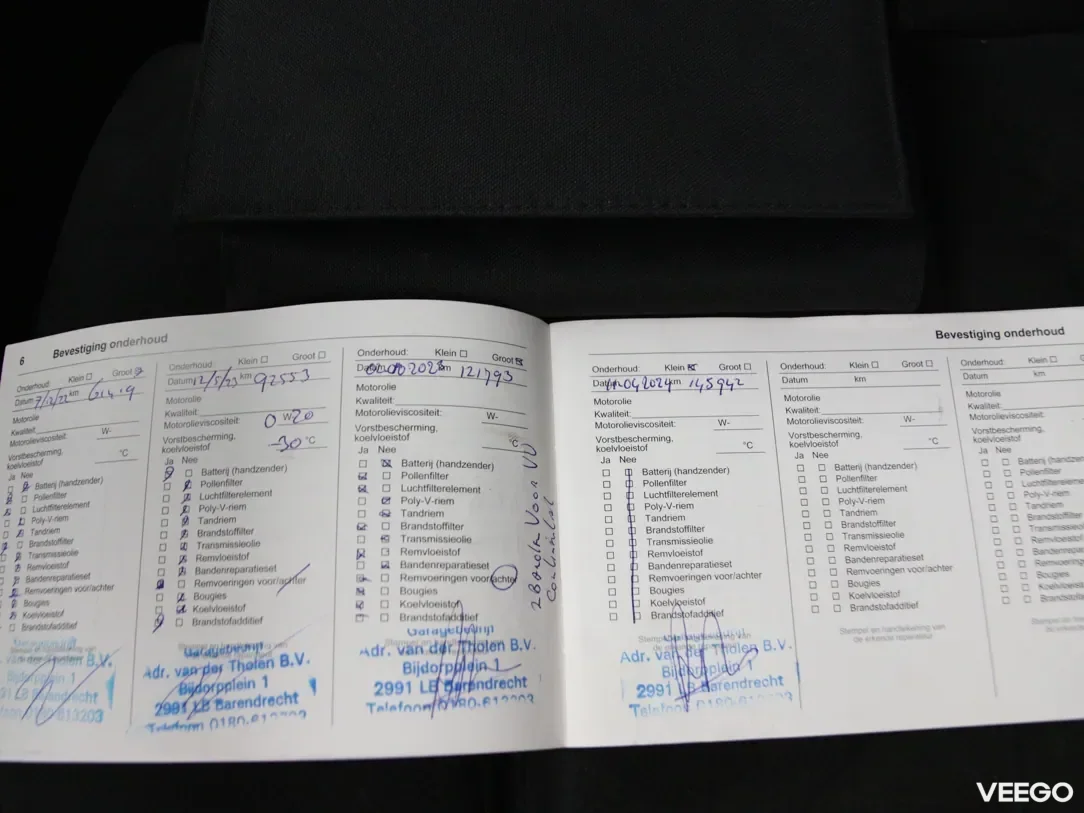 6 Bevestiging onderhoud
Onderhoud: Klein ☐ Groot
Datum 7/12/22 km
Motorolie
Kwaliteit:
Motorolieviscositeit: W-
Vorstbescherming, °C
koelvloeistof
Ja Nee
Batterij (handzender)
Pollenfilter
Luchtfilterelement
Poly-V-riem
Tandriem
Brandstoffilter
Transmissieolie
Remvloeistof
Bandenreparatieset
Remvoeringen voor/achter
Bougies
Koelvloeistof
Brandstofadditief
Adr. van der Tholen B.V.
Bijdorpplein 1
2991 LB Barendrecht
Telefoon 0180-613203
Onderhoud: Klein ☐ Groot ☐
Datum 12/5/23 km 92553
Motorolie
Kwaliteit:
Motorolieviscositeit: 0 W-20
Vorstbescherming, -30 °C
koelvloeistof
Ja Nee
Batterij (handzender)
Pollenfilter
Luchtfilterelement
Poly-V-riem
Tandriem
Brandstoffilter
Transmissieolie
Remvloeistof
Bandenreparatieset
Remvoeringen voor/achter
Bougies
Koelvloeistof
Brandstofadditief
Garagebedrijf
Adr. van der Tholen B.V.
Bijdorpplein 1
2991 LB Barendrecht
Telefoon 0180-613203
Onderhoud: Klein ☐ Groot ☒
2023 km 121793
Motorolie
Kwaliteit:
Motorolieviscositeit: W-
Vorstbescherming, °C
koelvloeistof
Ja Nee
Batterij (handzender)
Pollenfilter
Luchtfilterelement
Poly-V-riem
Tandriem
Brandstoffilter
Transmissieolie
Remvloeistof
Bandenreparatieset
Remvoeringen voor/achter
Bougies
Koelvloeistof
Brandstofadditief
2 Banden Voor VV
Continental
Garagebedrijf
Adr. van der Tholen B.V.
Bijdorpplein 1
2991 LB Barendrecht
Telefoon 0180-613203
Bevestiging onderhoud
Onderhoud: Klein ☒ Groot ☐
Datum 04.2024 km 145942
Motorolie
Kwaliteit:
Motorolieviscositeit: W-
Vorstbescherming, °C
koelvloeistof
Ja Nee
Batterij (handzender)
Pollenfilter
Luchtfilterelement
Poly-V-riem
Tandriem
Brandstoffilter
Transmissieolie
Remvloeistof
Bandenreparatieset
Remvoeringen voor/achter
Bougies
Koelvloeistof
Brandstofadditief
Adr. van der Tholen B.V.
Bijdorpplein 1
2991 LB Barendrecht
Telefoon 0180-613203
Onderhoud: Klein ☐ Groot ☐
Datum km
Motorolie
Kwaliteit:
Motorolieviscositeit: W-
Vorstbescherming, °C
koelvloeistof
Ja Nee
Batterij (handzender)
Pollenfilter
Luchtfilterelement
Poly-V-riem
Tandriem
Brandstoffilter
Transmissieolie
Remvloeistof
Bandenreparatieset
Remvoeringen voor/achter
Bougies
Koelvloeistof
Brandstofadditief
Stempel en handtekening van
de erkende reparateur
Onderhoud: Klein ☐
Datum km
Motorolie
Kwaliteit:
Motorolieviscositeit:
Vorstbescherming,
koelvloeistof
Ja Nee
Batterij (handzen
Pollenfilter
Luchtfiltereleme
Poly-V-riem
Tandriem
Brandstoffilter
Transmissieolie
Remvloeistof
Bandenrepara
Remvoeringen
Bougies
Koelvloeistof
Brandstofaddit
Stempel en han
de erkende
VEEGO